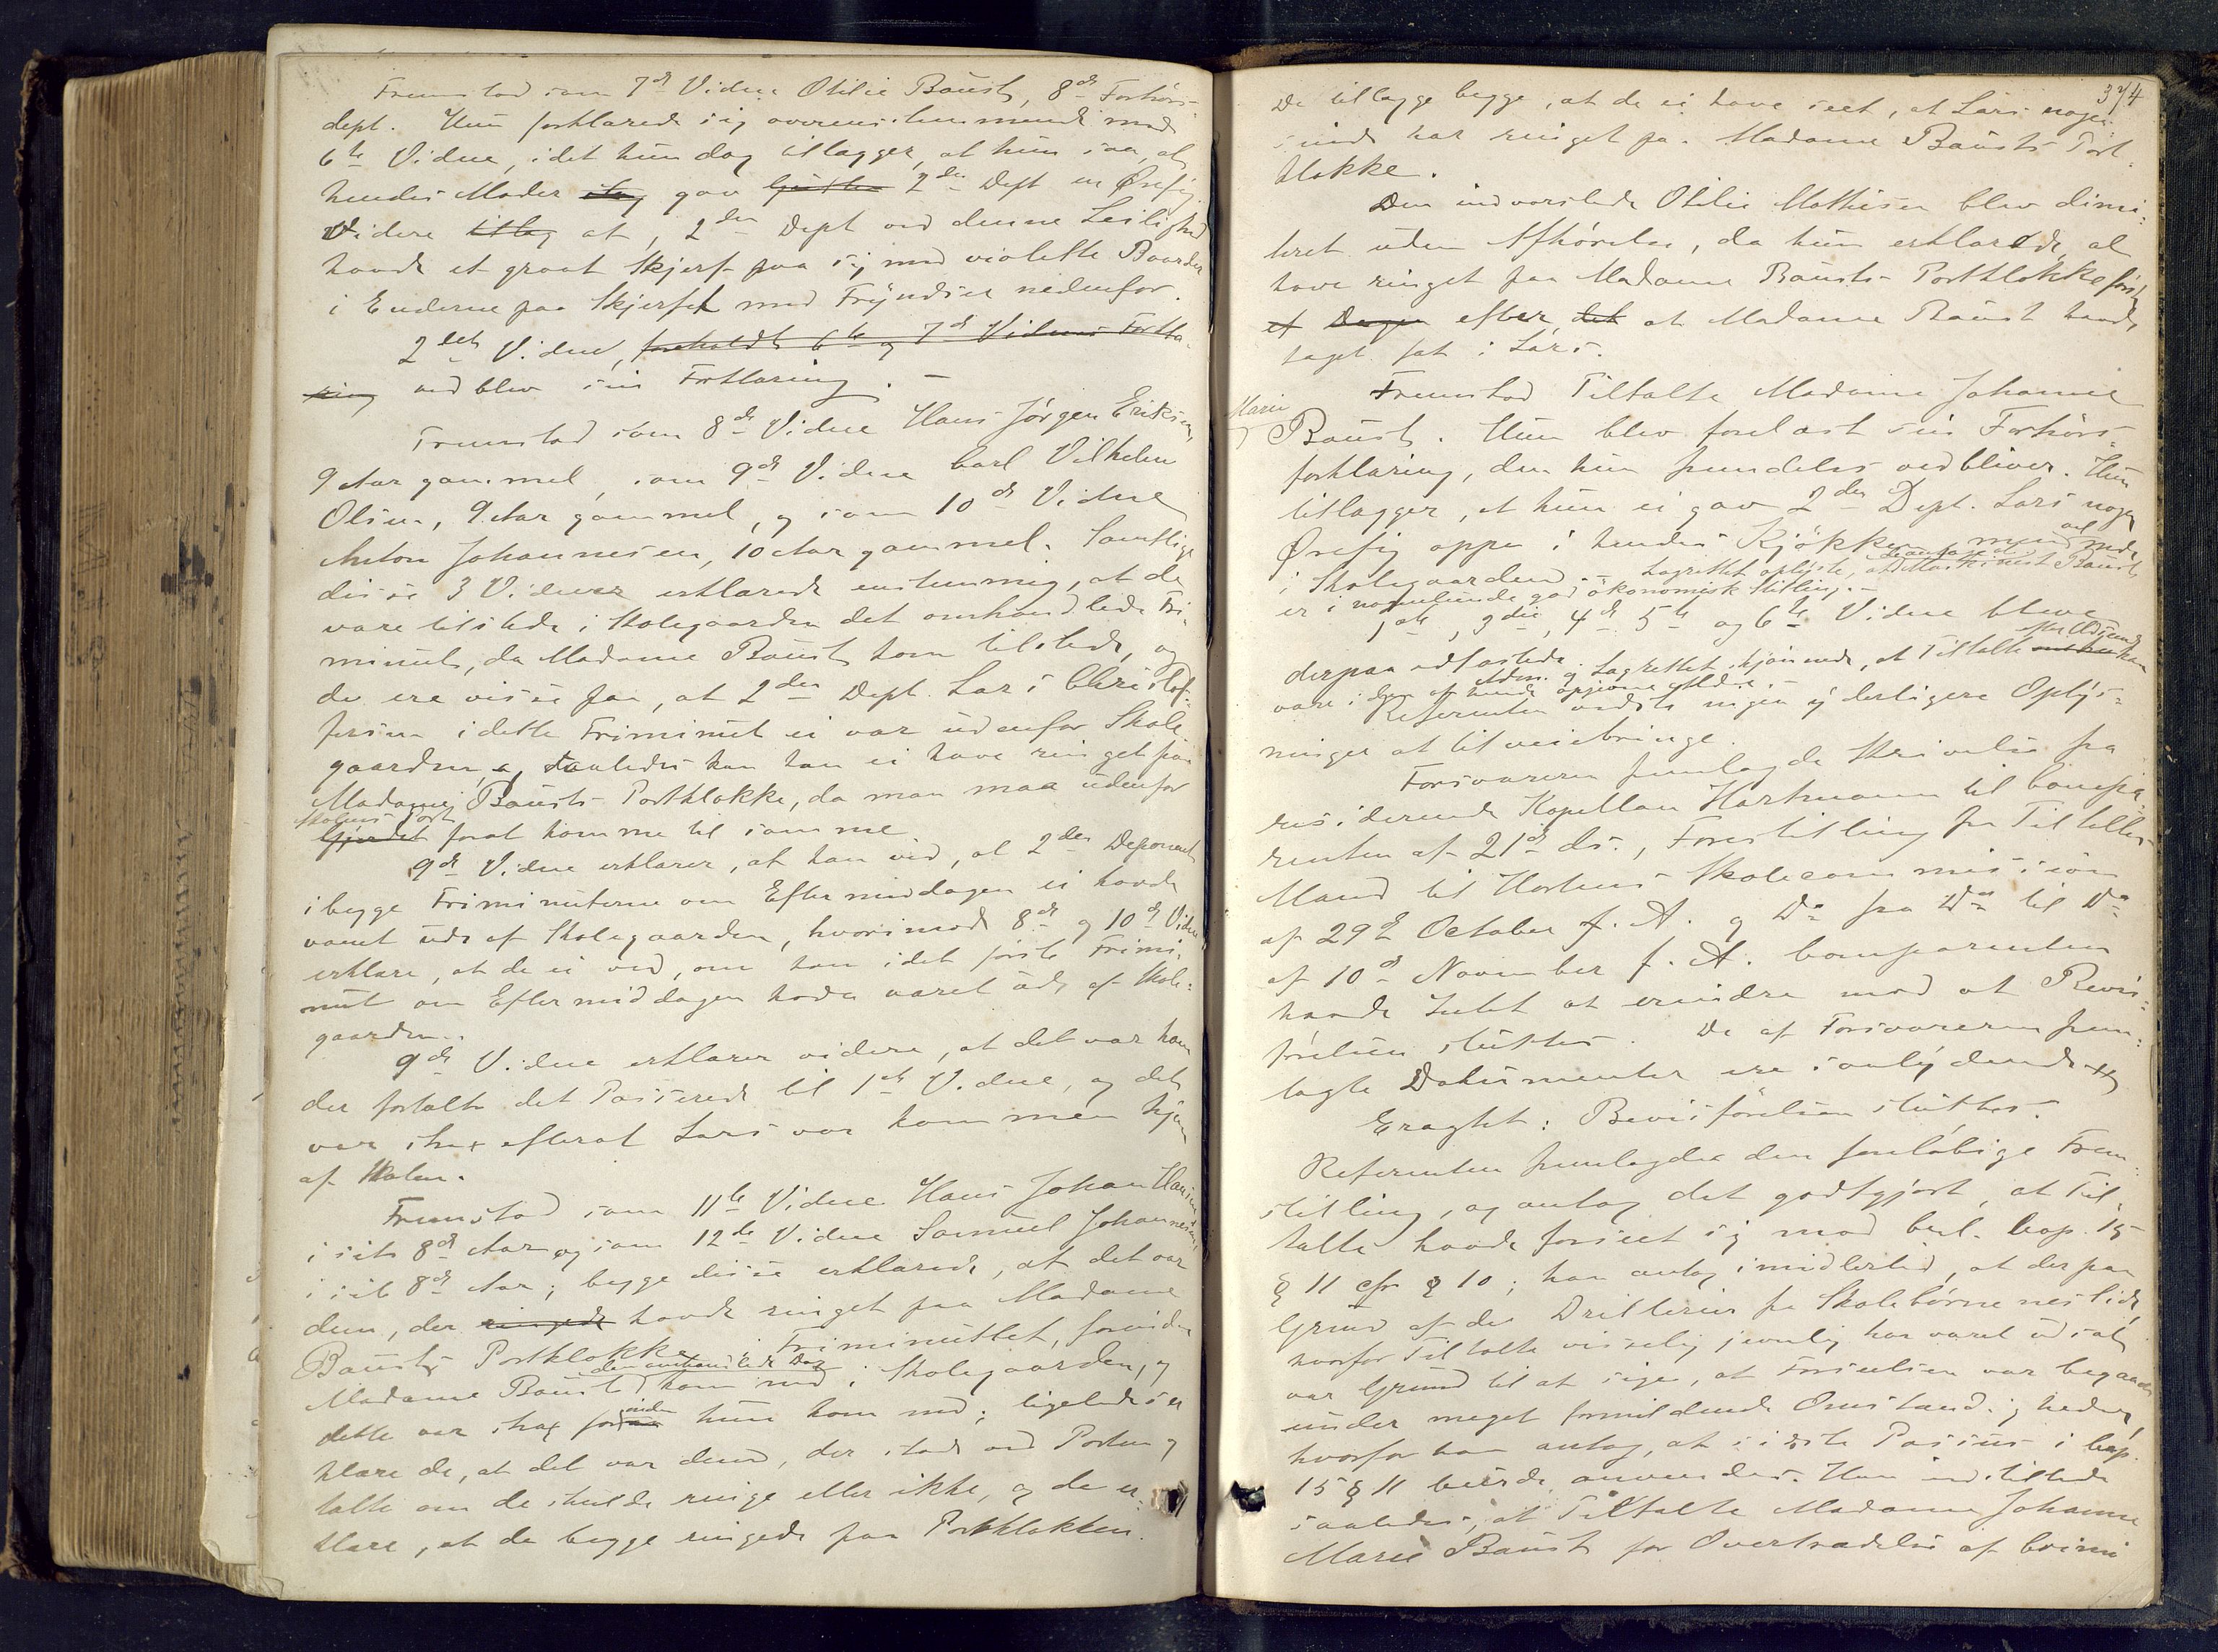 Fremstod som 7de Vidne Otilie Baust, 8de Forhørs-
dept. Hun forklarede sig overensstemmende med
6te Vidne, idet hun dog tillægger, at hun saa, at
hendes Moder gav 2den Dept en Ørefig
Videre at, 2den Dept ved denne Leilighed
havde et graat Skjerf paa sig med violette Border
i Enderne paa Skjerfet med Fryndser nedenfor.
2det Vidne, foreholdt 6te og 7de Vidnes Forkla-
ring vedblev sin Forklaring. –
Fremstod som 8de Vidne Hans Jörgen Eriksen,
9 Aar gammel, som 9de Vidne Carl Vilhelm
Olsen, 9 Aar gammel, og som 10de Vidne
Anton Johannesen, 10 Aar gammel. Samtlige
disse 3 Vidner erklærede enstemmig, at de
vare tilstede i Skolegaarden det omhandlede Fri-
minut, da Madame Baust kom tilstede, og
de ere visse paa, at 2den Dept. Lars Christof-
fersen i dette Friminut ei var udenfor Skole-
gaarden, saaledes kan han ei have ringet paa
Madame Bausts Portklokke, da man maa udenfor
Skolens Port
Gjerdet forat komme til samme.
9de Vidne erklærer, at han ved, at 2den Deponent
i begge Friminuterne om Eftermiddagen ei havde
været ude af Skolegaarden, hvorimod 8de og 10de Vidne
erklære, at de ei ved, om han i det første Frimi-
nut om Eftermiddagen havde været ude af Skole-
gaarden.
9de Vidne erklærer videre, at det var ham
der fortalte det Passerede til 1ste Vidne, og det
var strax efterat Lars var kommen hjem
af Skolen.
Fremstod som 11te Vidne Hans Johan Hansen
i sit 8de Aar og som 12te Vidne Samuel Johannesen,
i sit 8de Aar; begge disse erklærede, at det var
dem, der ringede havde ringet paa Madame
Bausts Portklokke i Friminuttet, forinden
den omhandlede Dag
Madame Baust kom ned i Skolegaarden, og
dette var strax forinden hun kom ned; ligeledes er-
klære de, at det var dem, der stod ved Porten og
talte om de skulde ringe eller ikke, og de er-
klære, at de begge ringede paa Portklokken.
374
De tillægge begge, at de ei have seet, at Lars nogen-
sinde har ringet paa Madame Bausts Port-
klokke.
Den indvarslede Otilie Mathisen blev dimi-
teret uden Afhørelse, da hun erklærede, at
have ringet paa Madame Bausts Portklokke först
efter, det at Madame Baust havde
taget fat i Lars.
Fremstod Tiltalte Madame Johanne
Marie
Baust. Hun blev forelæst sin Forhörs-
forklaring, den hun fremdeles vedbliver. Hun
tillægger, at hun ei gav 2den Dept. Lars nogen
Ørefig oppe i hendes Kjökken, men vel nede
i Skolegaarden. – Lagrettet oplyste, at Baust
er i nogenlunde god ökonomisk Stilling. –
1ste, 3die, 4de 5te og 6te Vidne bleve
derpaa edfæstede. Lagrettet skjönnede, at Tiltalte
være i den af hende opgivne Alder. –
Referenten vidste ingen yderligere Oplys-
ninger at tilveiebringe.
Forsvareren fremlagde Skrivelse fra
residerende Kapellan Hartmann til Compa-
renten af 21de ds., Forestilling fra Tiltaltes
Mand til Hortens Skolecommission
af 29de October f. A. og Do fra Do til Do
af 10de November f. A. Comparenten
havde Intet at erindre mod at Bevis-
förelsen sluttes. De af Forsvareren frem-
lagte Dokumenter ere saalydende
Eragtet: Bevisförelsen sluttes.
Referenten fremlagde den foreløbige Frem-
stilling, og antog det godtgjort, at Til-
talte havde forseet sig mod Crl. Cap. 15
§ 11 cfr § 10; han antog imidlertid, at der paa
Grund af de Drillerier fra Skolebörnenes Side,
hvorfor Tiltalte visselig jevnlig har været udsat,
var Grund til at sige, at Forseelsen var begaaet
under meget formildende Omstændigheder,
hvorfor han antog, at sidste Passus i Cap.
15 § 11 burde anvendes. Han indstillede
saaledes, at Tiltalte Madame Johanne
Marie Baust for Overtrædelse af Crimi